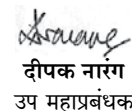 दीपक नारंग
उप महाप्रबंधक